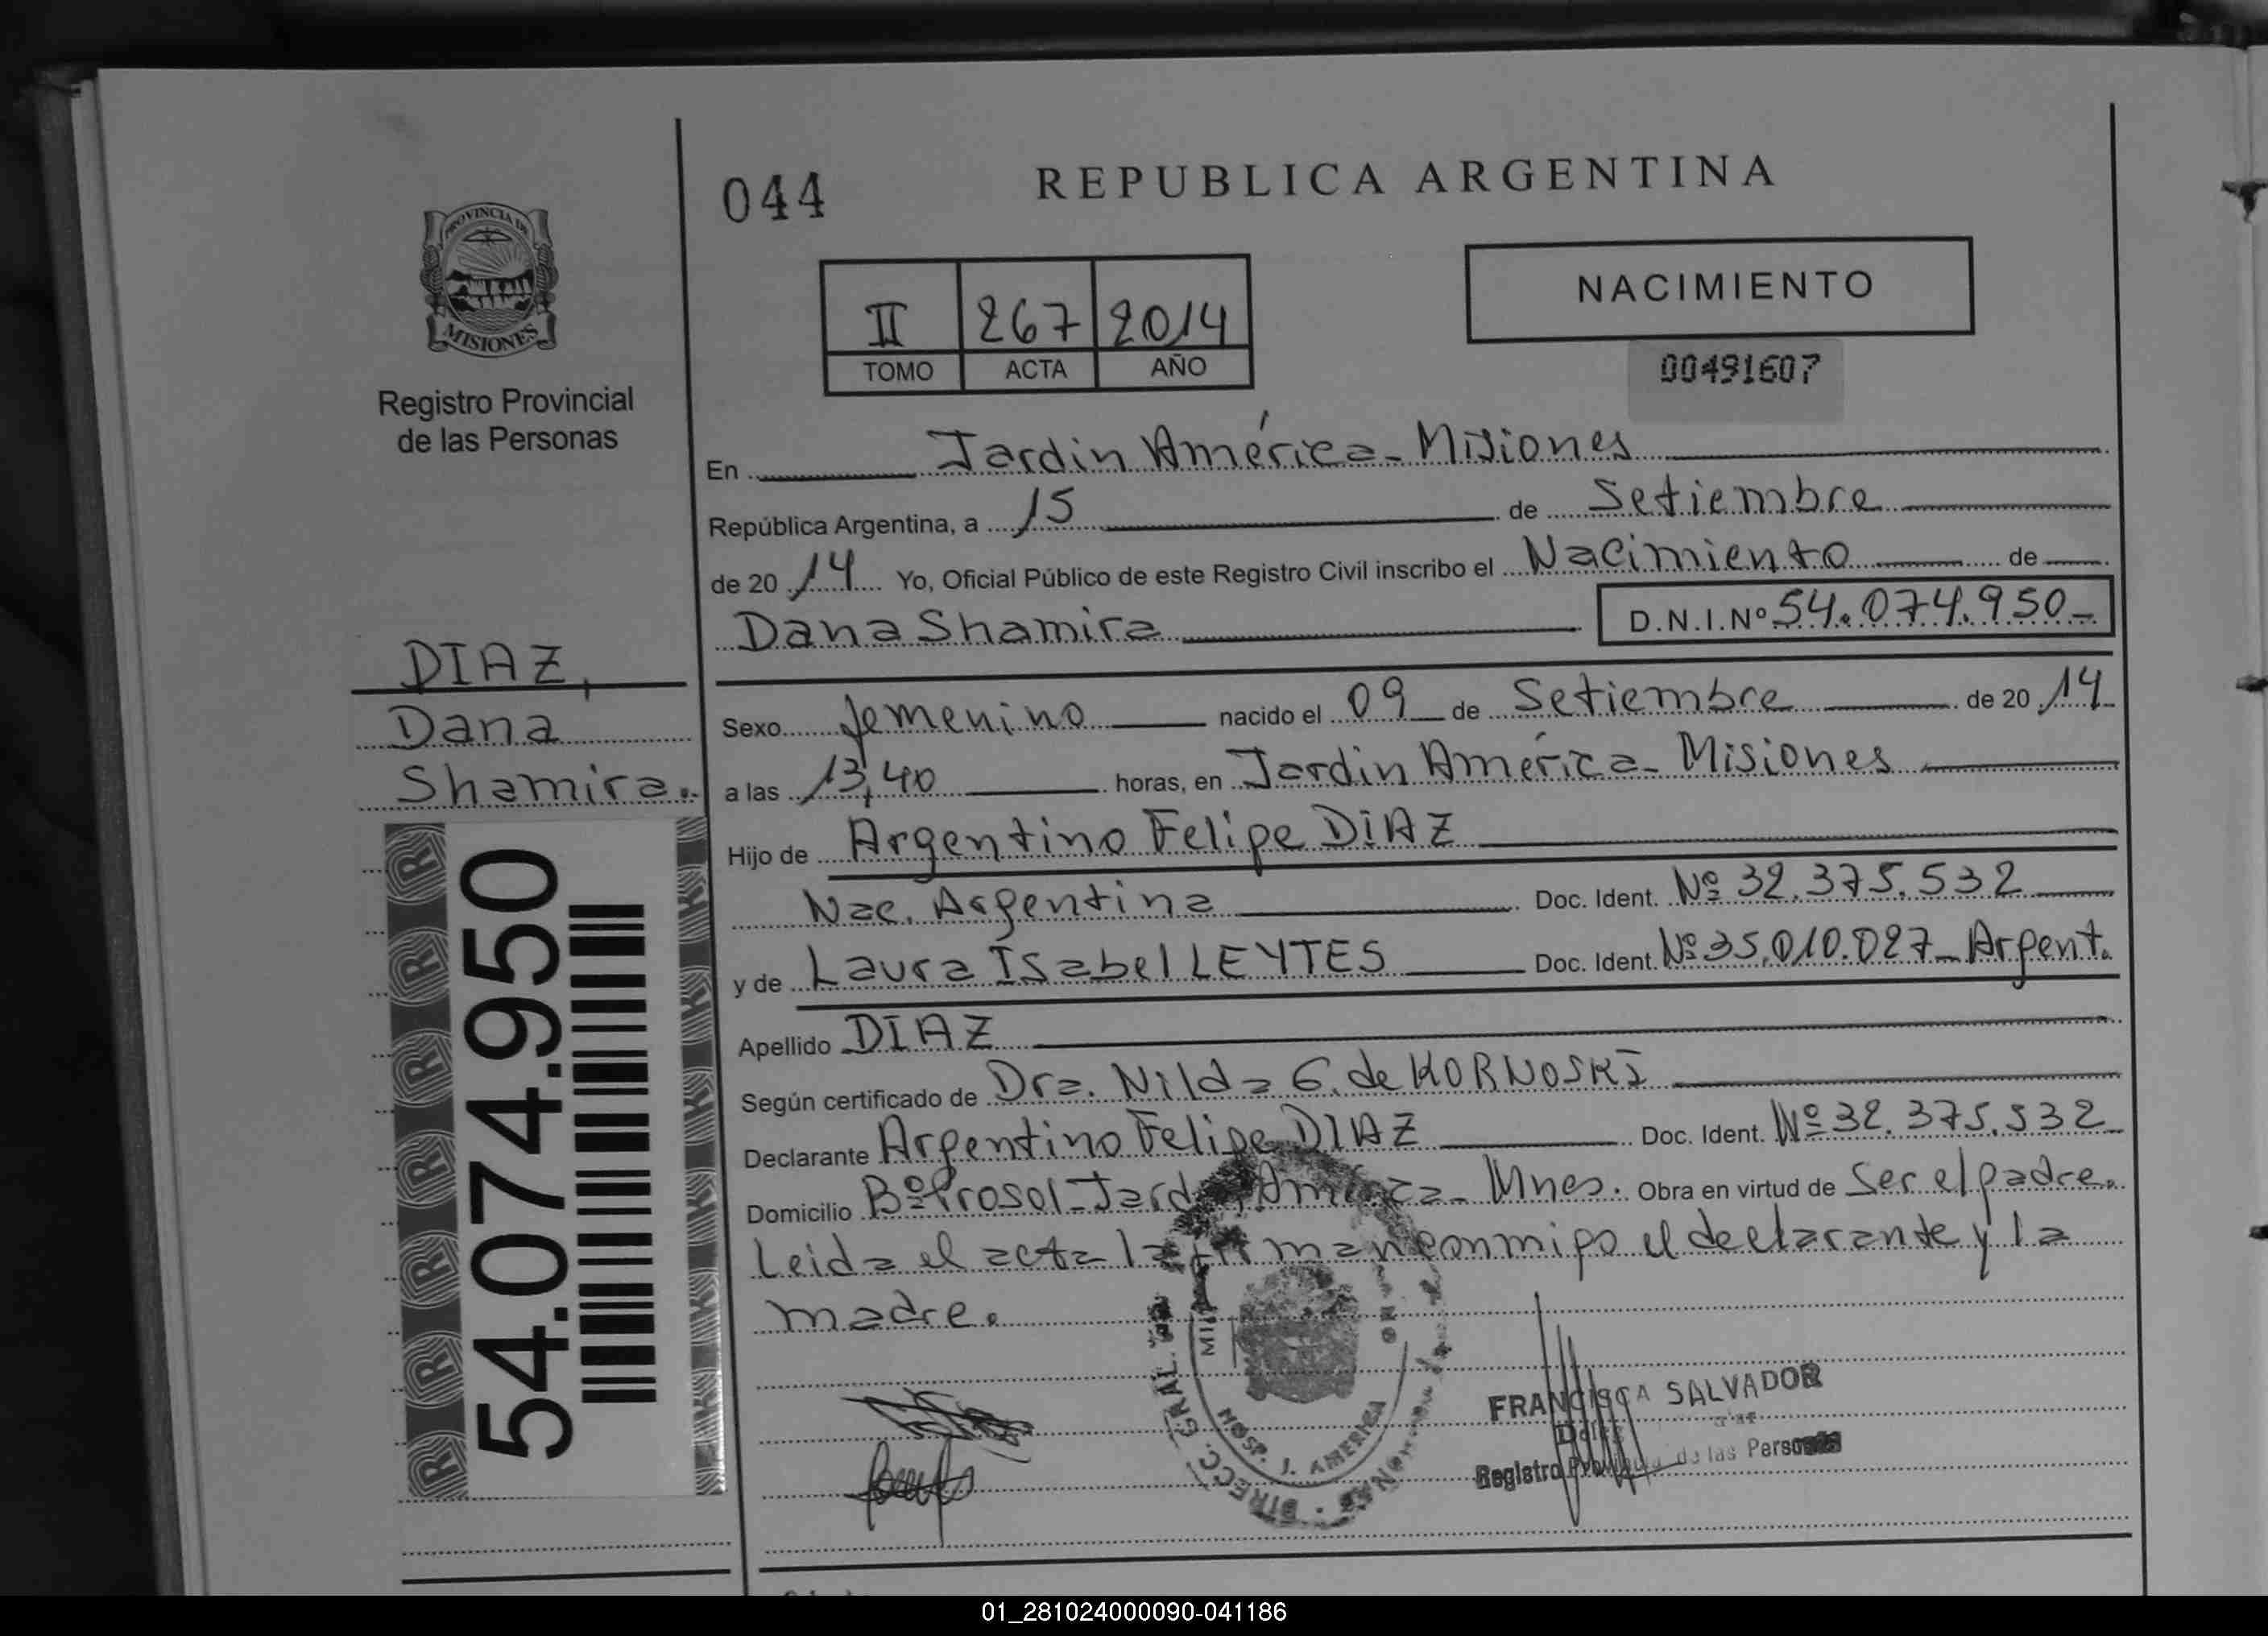 044
REPUBLICA ARGENTINA
PROVINCIA DE
MISIONES
Registro Provincial
de las Personas
II 267 2014
TOMO ACTA AÑO
NACIMIENTO
00491607
En Jardin América - Misiones
República Argentina, a 15 de Setiembre
de 20 14 Yo, Oficial Público de este Registro Civil inscribo el Nacimiento de
Dana Shamira D.N.I.Nº 54.074.950-
DIAZ,
Dana
Shamira.
54.074.950
Sexo femenino nacido el 09 de Setiembre de 20 14
a las 13,40 horas, en Jardin América - Misiones
Hijo de Argentino Felipe DIAZ
Nac. Argentina Doc. Ident. Nº 32.375.532
y de Laura Isabel LEYTES Doc. Ident. Nº 35.010.027 - Argent.
Apellido DIAZ
Según certificado de Dra. Nilda G. de KORNOSKI
Declarante Argentino Felipe DIAZ Doc. Ident. Nº 32.375.532
Domicilio Bº Prosol - Jardin América - Mnes. Obra en virtud de Ser el padre.
Leida el acta la firman conmigo el declarante y la
madre.
DIRECC. GRAL.
HOSP. J. AMERICA
FRANCISCA SALVADOR
Registro de las Personas
01_281024000090-041186